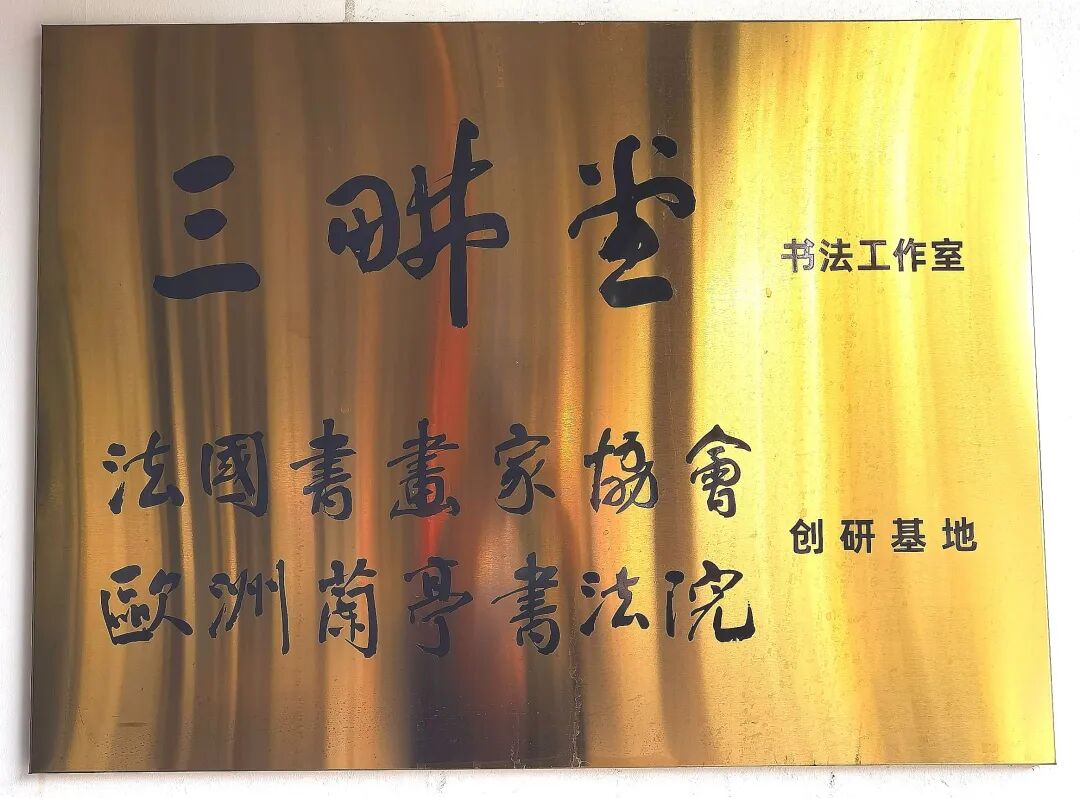 三畊堂 书法工作室
法國書畫家協會
歐洲蘭亭書法院
创研基地